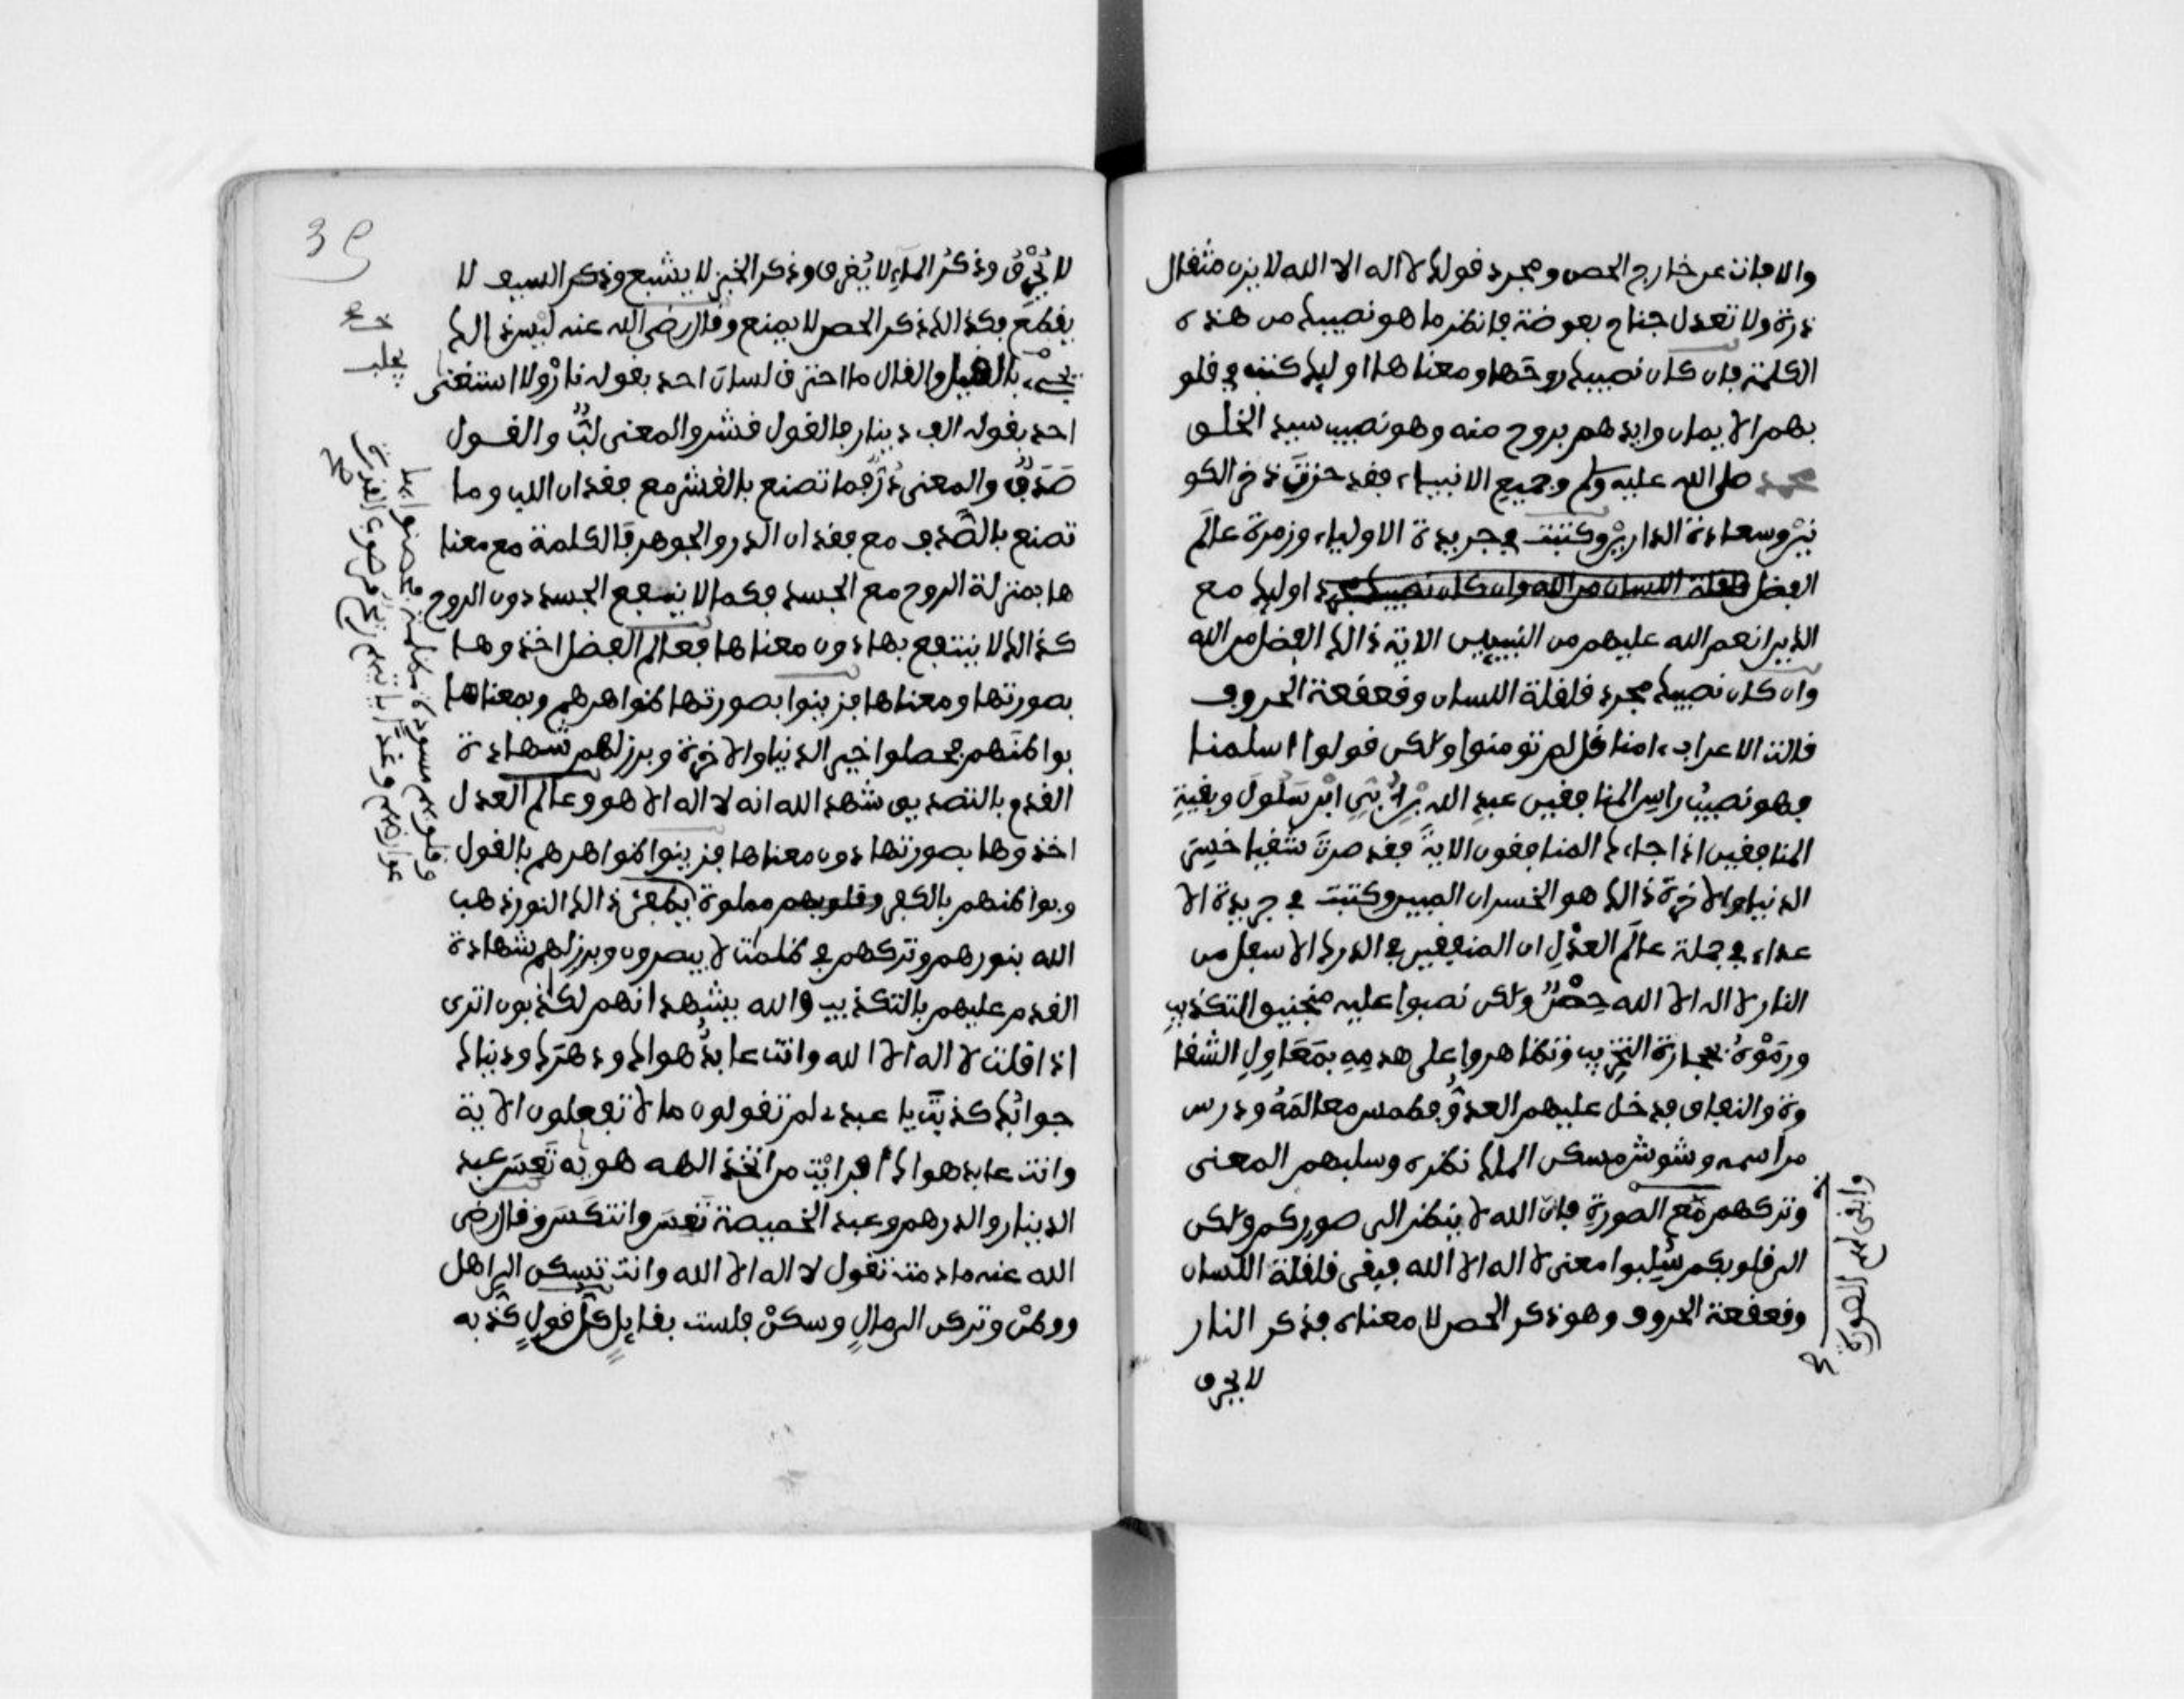 والا فانت عن خارج الحصن ومجرد قولك لا اله الا الله لا يزن مثقال
ذرة ولا تعدل جناح بعوضة فانظر ما هو نصيبك من هذه
الكلمة فان كان نصيبك روحها ومعناها اوليك كتب في قلو
بهم الايمان وايدهم بروح منه وهو نصيب سيد الخلق
محمد صلى الله عليه وسلم وجميع الانبياء فقد حزت ذخر الكو
نين وسعادة الدارين وكتبت في جريدة الاولياء وزمرة عالم
الفضل قلقلة اللسان من الله وان كان نصيبك مجرد اوليك مع
الذين انعم الله عليهم من النبيين الاية ذالك الفضل من الله
وان كان نصيبك مجرد قلقلة اللسان وقعقعة الحروف
قالت الاعراب ءامنا قل لم تومنوا ولكن قولوا اسلمنا
فهو نصيب راس المنافقين عبد الله بن ابي ابن سلول وبقية
المنافقين اذا جاءك المنافقون الاية فقد صرت شقيا خسرت
الدنيا والاخرة ذالك هو الخسران المبين وكتبت في جريدة الا
عداء في جملة عالم العدل ان المنفقين في الدرك الاسفل من
النار لا اله الا الله حصن ولكن نصبوا عليه منجنيق التكذيب
ورموه بحجارة التخريب وتظاهروا على هدمه بمعاول الشقا
وة والنفاق فدخل عليهم العدو فطمس معالمه ودرس
مراسمه وشوش مسكن الملك نظره وسلبهم المعنى
وتركهم مع الصورة فان الله لا ينظر الى صوركم ولكن
الى قلوبكم سلبوا معنى لا اله الا الله فبقى قلقلة اللسان
وقعقعة الحروف وهو ذكر الحصن لا معناه فذكر النار
لا يحرق
وابقى لهم الصورة
صح
39
لا يحرق وذكر الماء لا يغرق وذكر الخبز لا يشبع وذكر السيف لا
يقطع فكذالك ذكر الحصن لا يمنع وقال رضي الله عنه ليس ذالك
بالقيل والقال ما احترق لسان احد بقوله نار ولا استغنى
احد بقوله الف دينار فالقول قشر والمعنى لب والقول
صدف والمعنى در فما تصنع بالقشر مع فقدان اللب وما
تصنع بالصدف مع فقدان الدر والجوهر فالكلمة مع معنا
ها بمنزلة الروح مع الجسد فكما لا ينتفع الجسد دون الروح
كذالك لا ينتفع بها دون معناها فعالم الفضل اخذوها
بصورتها ومعناها فزينوا بصورتها ظواهرهم وبمعناها
بواطنهم فحصلوا خير الدنيا والاخرة وبرز لهم شهادة
القدم بالتصديق شهد الله انه لا اله الا هو وعالم العدل
اخذوها بصورتها دون معناها فزينوا ظواهرهم بالقول
وبواطنهم بالكفر وقلوبهم مملوة ذالك النور ذهب
الله بنورهم وتركهم في ظلمت لا يبصرون وبرز لهم شهادة
القدم عليهم بالتكذيب والله يشهد انهم لكذبون اترى
اذا قلت لا اله الا الله وانت عابد هواك ودهرك ودنياك
جوابك كذبت يا عبد لم تقولون ما لا تفعلون الاية
وانت عابد هواك افرايت من اتخذ الهه هويه تعس عبد
الدينار والدرهم وعبد الخميصة تعس وانتكس وقال رضي
الله عنه ما دمت تقول لا اله الا الله وانت تسكن الى اهل
ووطن وتركن الى مال وسكن فلست بقايل كل قول كذبه